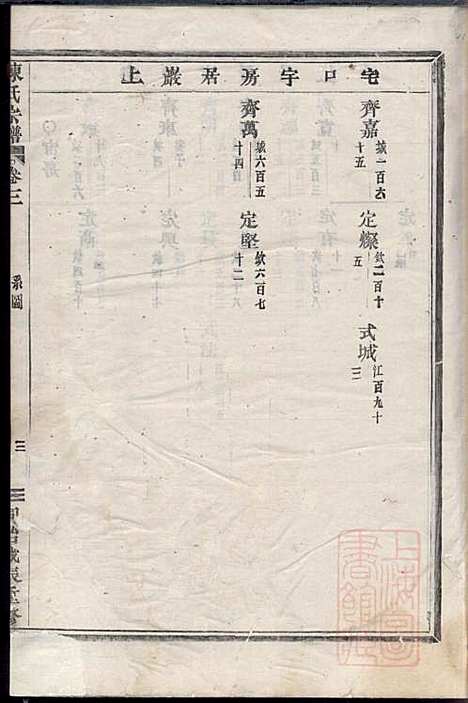 宅口字房居巖上
齊嘉 城一百六十五
定燦 欽二百十五
式城 江百九十三
齊萬 城六百五十四
定堅 欽六百七十二
陳氏宗譜 卷三
系圖
三
上海圖書館藏